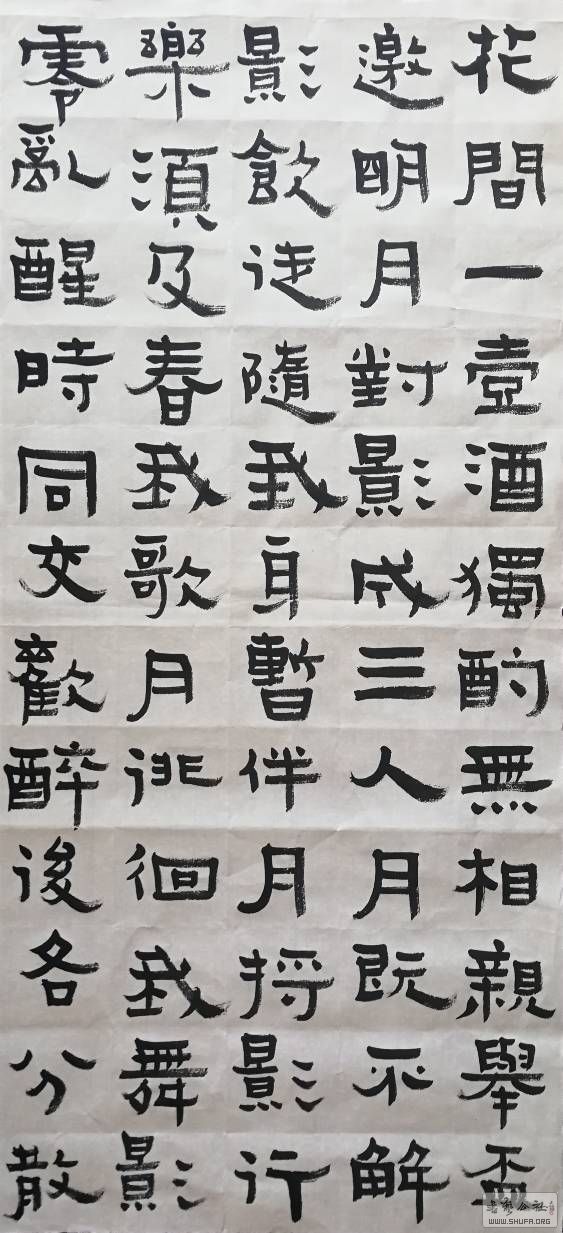 花間一壺酒獨酌無相親舉盃
邀明月對影成三人月既不解
影飲徒隨我身暫伴月將影行
樂須及春我歌月徘徊我舞影
零亂醒時同交歡醉後各分散
WWW.SHUFA.ORG